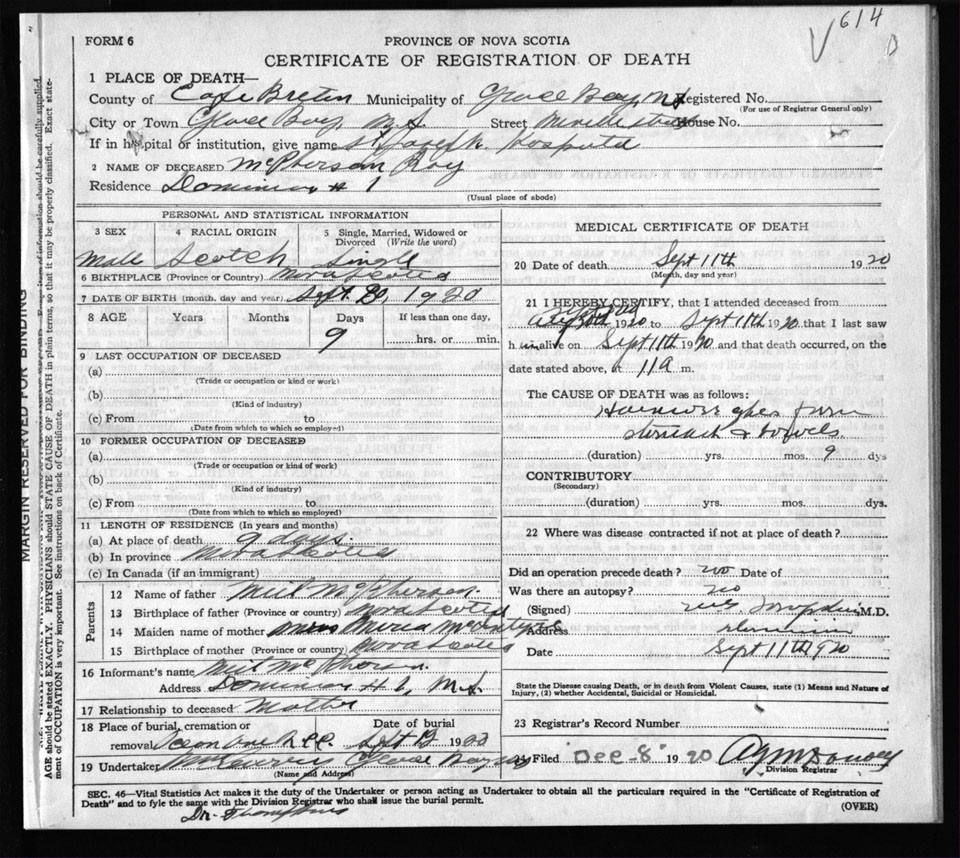 614
FORM 6
PROVINCE OF NOVA SCOTIA
CERTIFICATE OF REGISTRATION OF DEATH
1 PLACE OF DEATH—
County of Cape Breton Municipality of Glace Bay, N.S Registered No.
(For use of Registrar General only)
City or Town Glace Bay, N.S. Street House No.
If in hospital or institution, give name St Joseph Hospital
2 NAME OF DECEASED McPherson Roy
Residence Dominion # 1
(Usual place of abode)
PERSONAL AND STATISTICAL INFORMATION
3 SEX 4 RACIAL ORIGIN 5 Single, Married, Widowed or Divorced (Write the word)
Male Scotch Single
6 BIRTHPLACE (Province or Country) Nova Scotia
7 DATE OF BIRTH (month, day and year) Sept. 1920
8 AGE Years Months Days If less than one day,
9 hrs. or min.
9 LAST OCCUPATION OF DECEASED
(a)
(Trade or occupation or kind or work)
(b)
(Kind of industry)
(c) From to
(Date from which to which so employed)
10 FORMER OCCUPATION OF DECEASED
(a)
(Trade or occupation or kind of work)
(b)
(Kind of industry)
(c) From to
(Date from which to which so employed)
11 LENGTH OF RESIDENCE (In years and months)
(a) At place of death 9 days.
(b) In province Nova Scotia
(c) In Canada (if an immigrant)
Parents
12 Name of father Neil McPherson.
13 Birthplace of father (Province or country) Nova Scotia
14 Maiden name of mother McIntyre
15 Birthplace of mother (Province or country) Nova Scotia
16 Informant's name Neil McPherson.
Address Dominion # 1, N.S.
17 Relationship to deceased
18 Place of burial, cremation or Date of burial
removal Sept 12 1920
19 Undertaker Glace Bay
(Name and Address)
MEDICAL CERTIFICATE OF DEATH
20 Date of death Sept 11th 1920
(Month, day and year)
21 I HEREBY CERTIFY, that I attended deceased from
1920 to Sept 11th 1920 that I last saw
h im alive on Sept 11th 1920 and that death occurred, on the
date stated above, a 11 a m.
The CAUSE OF DEATH was as follows:
from
stomach & bowels.
(duration) yrs. mos. 9 dys
CONTRIBUTORY
(Secondary)
(duration) yrs. mos. dys.
22 Where was disease contracted if not at place of death?
Did an operation precede death? no Date of
Was there an autopsy? no
(Signed) M.D.
Address Dominion
Date Sept 11th 1920
State the Disease causing Death, or in death from Violent Causes, state (1) Means and Nature of
Injury, (2) whether Accidental, Suicidal or Homicidal.
23 Registrar's Record Number
Filed Dec - 8 1920
Division Registrar
SEC. 46—Vital Statistics Act makes it the duty of the Undertaker or person acting as Undertaker to obtain all the particulars required in the "Certificate of Registration of
Death" and to fyle the same with the Division Registrar who shall issue the burial permit. (OVER)
Dr. Thompkins
MARGIN RESERVED FOR BINDING
AGE should be stated EXACTLY. PHYSICIANS should STATE CAUSE OF DEATH in plain terms, so that it may be properly classified. Exact state-
ment of OCCUPATION is very important. See instructions on back of Certificate.